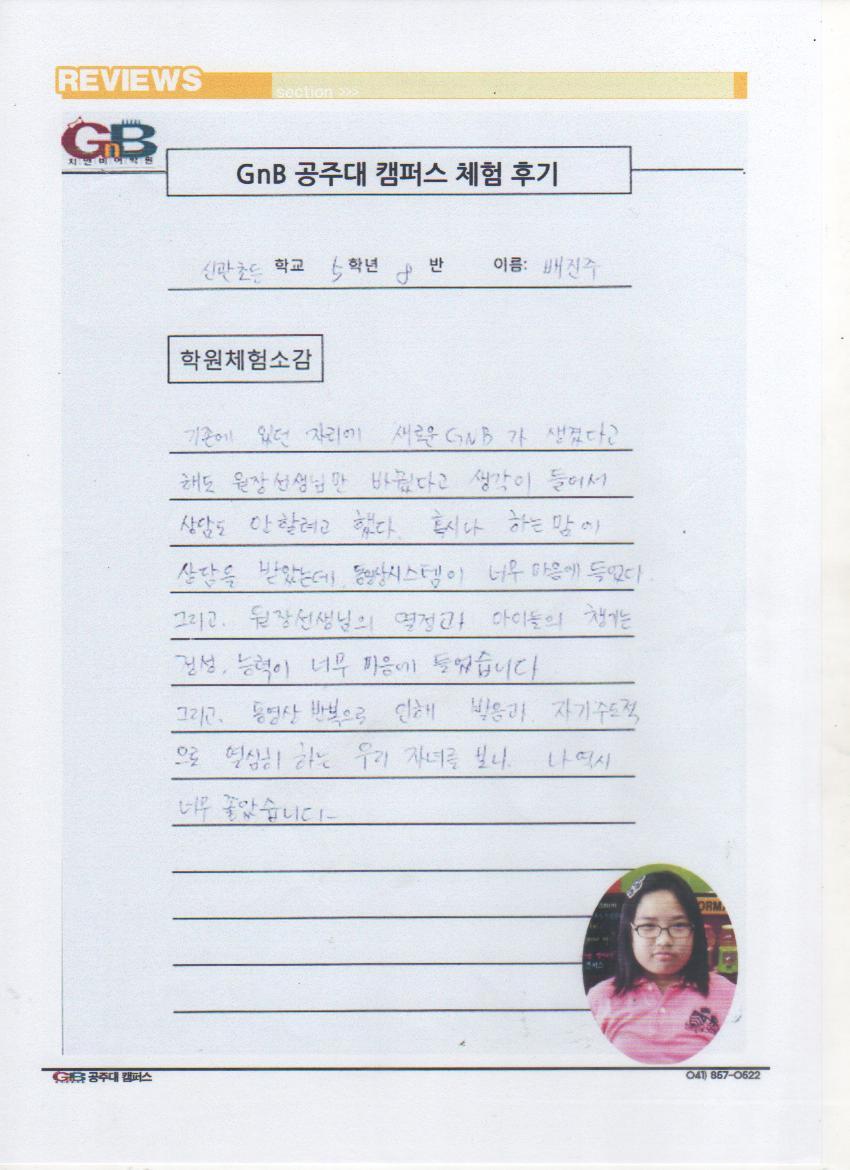 REVIEWS
section >>>
GnB
지앤비어학원
GnB 공주대 캠퍼스 체험 후기
신관초등 학교 5 학년 8 반 이름: 배진주
학원체험소감
기존에 있던 자리에 새로운 GNB 가 생겼다고
해도 원장선생님만 바꼈다고 생각이 들어서
상담도 안할려고 했다. 혹시나 하는맘이
상담을 받았는데, 동영상시스템이 너무 마음에 들었다.
그리고, 원장선생님의 열정과 아이들의 챙기는
정성, 능력이 너무 마음에 들었습니다
그리고, 동영상 반복으로 인해 발음과 자기주도적
으로 열심히 하는 우리 자녀를 보니, 나 역시
너무 좋았습니다-
ORMA
GnB 공주대 캠퍼스
041) 857-0522